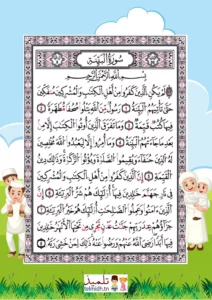 سُورَةُ الْبَيِّنَةِ
بِسْمِ اللَّهِ الرَّحْمَٰنِ الرَّحِيمِ
لَمْ يَكُنِ الَّذِينَ كَفَرُوا مِنْ أَهْلِ الْكِتَابِ وَالْمُشْرِكِينَ مُنفَكِّينَ
حَتَّىٰ تَأْتِيَهُمُ الْبَيِّنَةُ ١ رَسُولٌ مِّنَ اللَّهِ يَتْلُو صُحُفًا مُّطَهَّرَةً ٢
فِيهَا كُتُبٌ قَيِّمَةٌ ٣ وَمَا تَفَرَّقَ الَّذِينَ أُوتُوا الْكِتَابَ إِلَّا مِن
بَعْدِ مَا جَاءَتْهُمُ الْبَيِّنَةُ ٤ وَمَا أُمِرُوا إِلَّا لِيَعْبُدُوا اللَّهَ مُخْلِصِينَ
لَهُ الدِّينَ حُنَفَاءَ وَيُقِيمُوا الصَّلَاةَ وَيُؤْتُوا الزَّكَاةَ وَذَٰلِكَ دِينُ
الْقَيِّمَةِ ٥ إِنَّ الَّذِينَ كَفَرُوا مِنْ أَهْلِ الْكِتَابِ وَالْمُشْرِكِينَ
فِي نَارِ جَهَنَّمَ خَالِدِينَ فِيهَا أُولَٰئِكَ هُمْ شَرُّ الْبَرِيَّةِ ٦ إِنَّ الَّذِينَ
ءَامَنُوا وَعَمِلُوا الصَّالِحَاتِ أُولَٰئِكَ هُمْ خَيْرُ الْبَرِيَّةِ ٧
جَزَاؤُهُمْ عِندَ رَبِّهِمْ جَنَّاتُ عَدْنٍ تَجْرِي مِن تَحْتِهَا الْأَنْهَارُ خَالِدِينَ
فِيهَا أَبَدًا رَّضِيَ اللَّهُ عَنْهُمْ وَرَضُوا عَنْهُ ذَٰلِكَ لِمَنْ خَشِيَ رَبَّهُ ٨
تلميذ
telmidh.tn